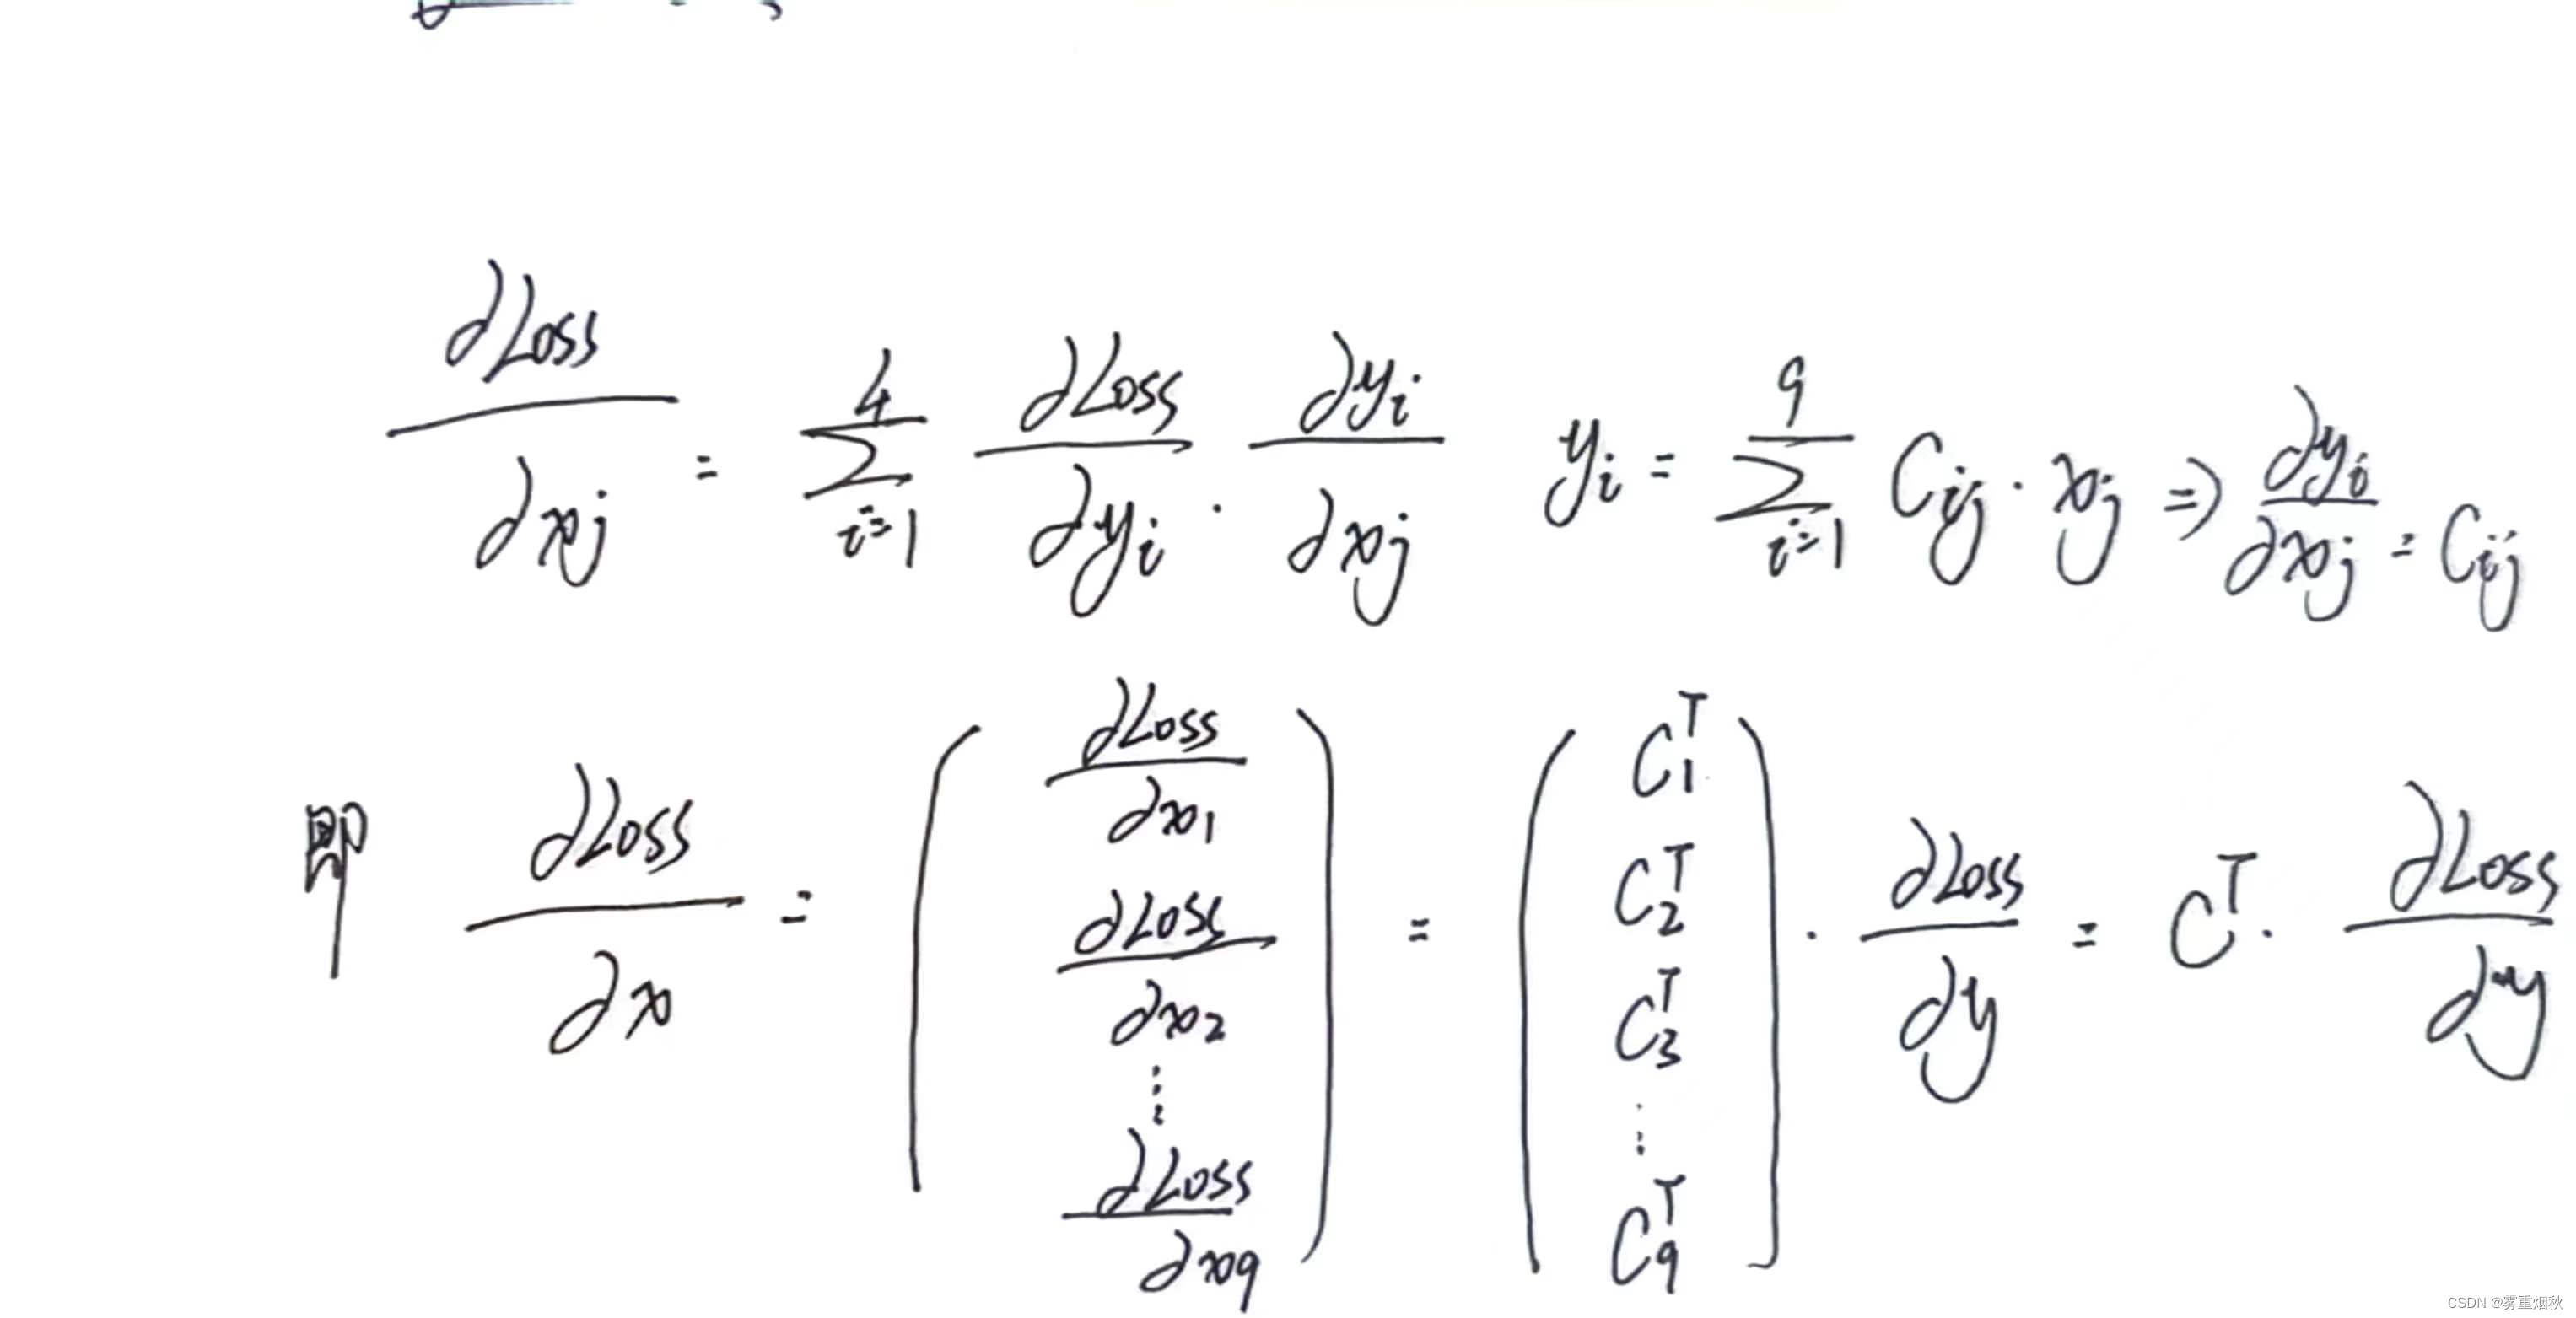 ∂Loss/∂xj = 4∑i=1 ∂Loss/∂yi · ∂yi/∂xj yi = 9∑i=1 Cij · xj ⇒ ∂yi/∂xj = Cij
即 ∂Loss/∂x = ( ∂Loss/∂x1 ∂Loss/∂x2 ⋮ ∂Loss/∂x9 ) = ( C1^T C2^T C3^T ⋮ C9^T ) · ∂Loss/∂y = C^T · ∂Loss/∂y
CSDN @雾重烟秋